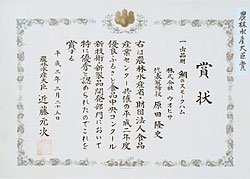 農林水産大臣賞
賞状
一出品財 鯛のスモークハム
株式会社 タオヒサ
代表取締役 原田隆史
右は農林水産省、財団法人食品
産業センター共催の平成二年度
優良ふるさと食品中央コンクール
新技術・新製品開発部門において
特に優秀と認められたのでこれを
賞する
平成三年三月十五日
農林水産大臣 近藤元次